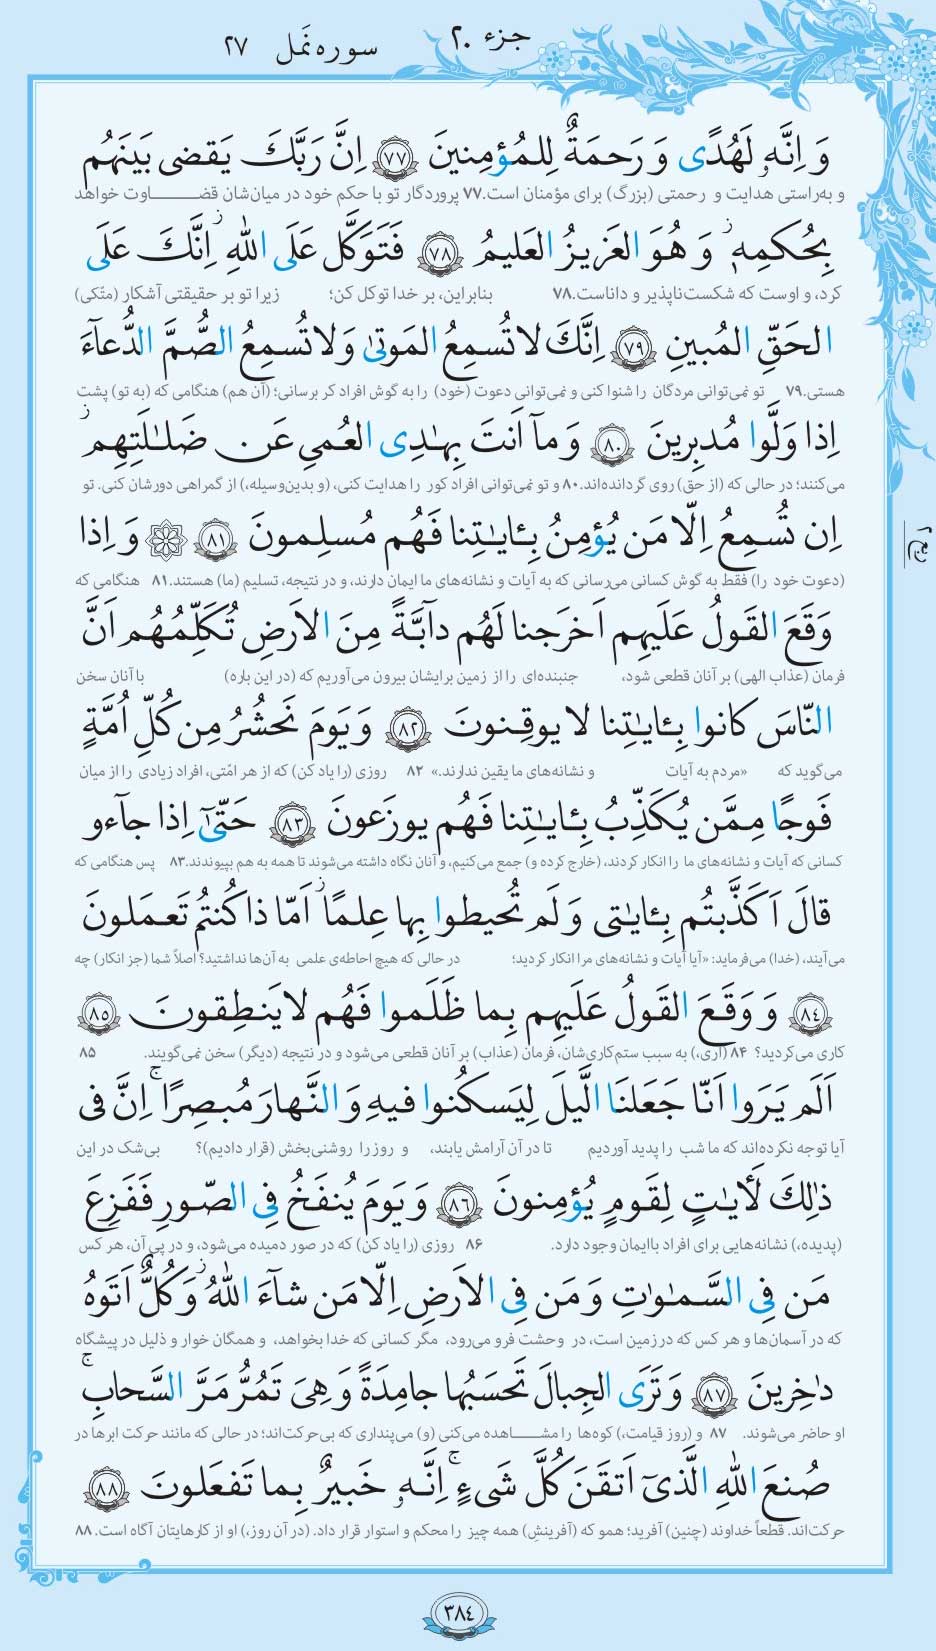 جزء ۲۰
سوره نَمل ۲۷
وَ اِنَّهُۥ لَهُدًى وَ رَحمَةٌ لِلمُؤمِنينَ ﴿۷۷﴾ اِنَّ رَبَّكَ يَقضى بَينَهُم
و به‌راستی هدایت و رحمتی (بزرگ) برای مؤمنان است.۷۷ پروردگار تو با حکم خود در میان‌شان قضـاوت خواهد
بِحُكمِهٖ ز وَ هُوَ العَزيزُ العَليمُ ﴿۷۸﴾ فَتَوَكَّل عَلَى اللّٰهِ ز اِنَّكَ عَلَى
کرد، و اوست که شکست‌ناپذیر و داناست.۷۸ بنابراین، بر خدا توکل کن؛ زیرا تو بر حقیقتی آشکار (متّکی)
الحَقِّ المُبينِ ﴿۷۹﴾ اِنَّكَ لا تُسمِعُ المَوتىٰ وَ لا تُسمِعُ الصُّمَّ الدُّعآءَ
هستی.۷۹ تو نمی‌توانی مردگان را شنوا کنی و نمی‌توانی دعوت (خود) را به گوش افراد کر برسانی؛ (آن هم) هنگامی که (به تو) پشت
اِذا وَلَّوا مُدبِرينَ ﴿۸۰﴾ وَ مآ اَنتَ بِهـٰدِى العُمىِ عَن ضَلـٰلَتِهِم ز
می‌کنند؛ در حالی که (از حق) روی گردانده‌اند.۸۰ و تو نمی‌توانی افراد کور را هدایت کنی، (و بدین‌وسیله،) از گمراهی دورشان کنی. تو
اِن تُسمِعُ اِلّا مَن يُؤمِنُ بِـٔايـٰتِنا فَهُم مُسلِمونَ ﴿۸۱﴾ ۞ وَ اِذا
(دعوت خود را) فقط به گوش کسانی می‌رسانی که به آیات و نشانه‌های ما ایمان دارند، و در نتیجه، تسلیم (ما) هستند.۸۱ هنگامی که
وَقَعَ القَولُ عَلَيهِم اَخرَجنا لَهُم دآبَّةً مِنَ الاَرضِ تُكَلِّمُهُم اَنَّ
فرمان (عذاب الهی) بر آنان قطعی شود، جنبنده‌ای را از زمین برایشان بیرون می‌آوریم که (در این باره) با آنان سخن
النّاسَ كانوا بِـٔايـٰتِنا لا يوقِنونَ ﴿۸۲﴾ وَ يَومَ نَحشُرُ مِن كُلِّ اُمَّةٍ
می‌گوید که «مردم به آیات و نشانه‌های ما یقین ندارند.» ۸۲ روزی (را یاد کن) که از هر امّتی، افراد زیادی را از میان
فَوجًا مِمَّن يُكَذِّبُ بِـٔايـٰتِنا فَهُم يوزَعونَ ﴿۸۳﴾ حَتّىٰٓ اِذا جآءو
کسانی که آیات و نشانه‌های ما را انکار کردند، (خارج کرده و) جمع می‌کنیم، و آنان نگاه داشته می‌شوند تا همه به هم بپیوندند.۸۳ پس هنگامی که
قالَ اَكَذَّبتُم بِـٔايـٰتى وَ لَم تُحيطوا بِها عِلمًا ز اَمّا ذا كُنتُم تَعمَلونَ
می‌آیند، (خدا) می‌فرماید: «آیا آیات و نشانه‌های مرا انکار کردید؛ در حالی که هیچ احاطه‌ی علمی به آن‌ها نداشتید؟ اصلاً شما (جز انکار) چه
﴿۸۴﴾ وَ وَقَعَ القَولُ عَلَيهِم بِما ظَلَموا فَهُم لا يَنطِقونَ ﴿۸۵﴾
کاری می‌کردید؟ ۸۴ (آری،) به سبب ستم‌کاری‌شان، فرمان (عذاب) بر آنان قطعی می‌شود و در نتیجه (دیگر) سخن نمی‌گویند. ۸۵
اَلَم يَرَوا اَنّا جَعَلنَا الَّيلَ لِيَسكُنوا فيهِ وَ النَّهارَ مُبصِرًا ج اِنَّ فى
آیا توجه نکرده‌اند که ما شب را پدید آوردیم تا در آن آرامش یابند، و روز را روشنی‌بخش (قرار دادیم)؟ بی‌شک در این
ذٰلِكَ لَأيـٰتٍ لِقَومٍ يُؤمِنونَ ﴿۸۶﴾ وَ يَومَ يُنفَخُ فِى الصّورِ فَفَزِعَ
(پدیده،) نشانه‌هایی برای افراد باایمان وجود دارد. ۸۶ روزی (را یاد کن) که در صور دمیده می‌شود، و در پی آن، هر کس
مَن فِى السَّمـٰوٰتِ وَ مَن فِى الاَرضِ اِلّا مَن شآءَ اللّٰهُ ز وَ كُلٌّ اَتَوهُ
که در آسمان‌ها و هر کس که در زمین است، در وحشت فرو می‌رود، مگر کسانی که خدا بخواهد، و همگان خوار و ذلیل در پیشگاه
دٰخِرينَ ﴿۸۷﴾ وَ تَرَى الجِبالَ تَحسَبُها جامِدَةً وَ هِىَ تَمُرُّ مَرَّ السَّحابِ ج
او حاضر می‌شوند. ۸۷ و (روز قیامت،) کوه‌ها را مشـاهده می‌کنی (و) می‌پنداری که بی‌حرکت‌اند؛ در حالی که مانند حرکت ابرها در
صُنعَ اللّٰهِ الَّذىٓ اَتقَنَ كُلَّ شَىءٍ ج اِنَّهُۥ خَبيرٌ بِما تَفعَلونَ ﴿۸۸﴾
حرکت‌اند. قطعاً خداوند (چنین) آفرید؛ همو که (آفرینشِ) همه چیز را محکم و استوار قرار داد. (در آن روز،) او از کارهایتان آگاه است. ۸۸
۳۸۴